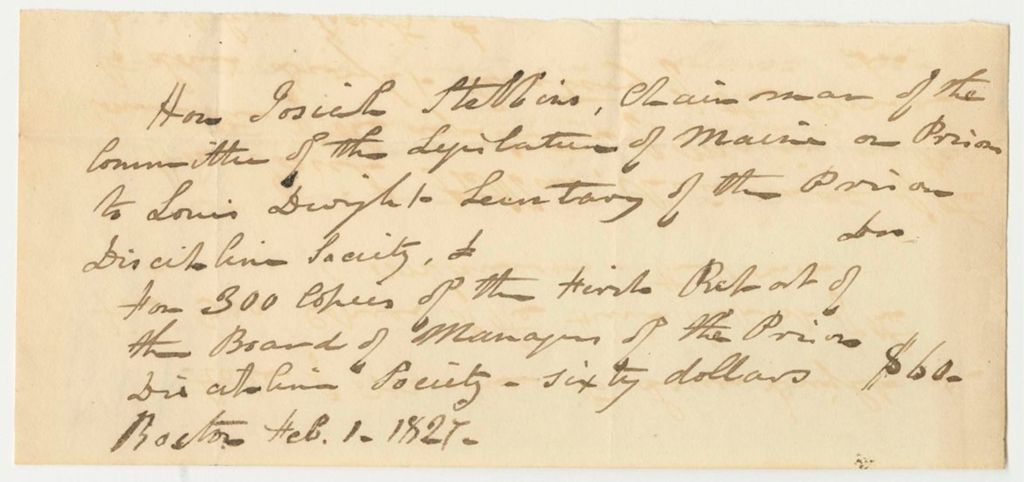 Hon Josiah Stebbins, Chairman of the
Committee of the Legislature of Maine on Prisons
to Louis Dwight Secretary of the Prison
Discipline Society, Dr
For 300 Copies of the First Report of
the Board of Managers of the Prison
Discipline Society - sixty dollars $60.
Boston Feb. 1. 1827.